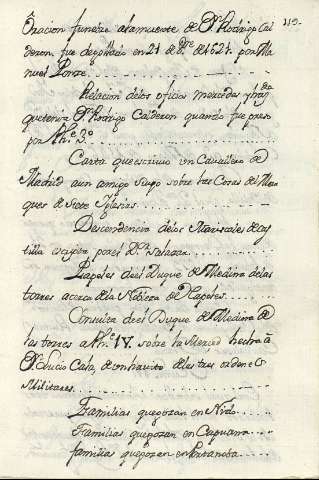 113.
Oracion funebre ala muerte de Dn. Rodrigo Cal
deron. fue degollado en 21 de 8re. de 1621. por Ma
nuel Ponze
Relacion delos oficios mercedes y
que tenia Dn. Rodrigo Calderon quando fue preso
por Phe. 3o.
Carta que escrivio un Cavallero de
Madrid a un amigo suyo sobre las Cosas del Mar
ques de Siete Yglesias
Descendencia delos Mariscales de Cas
tilla escripta por el Dr. Salazar
Papeles de el Duque de Medina delas
torres acerca dela Nobleza de Napoles
Consulta de el Duque de Medina de
las torres a Phe. IV. sobre la Merced hecha à
Dn. Lucio Cala, de un havito de las tres ordenes
Militares
Familias que gozan en Nido
Familias que gozan en Capuana
familias que gozan en Portanoba